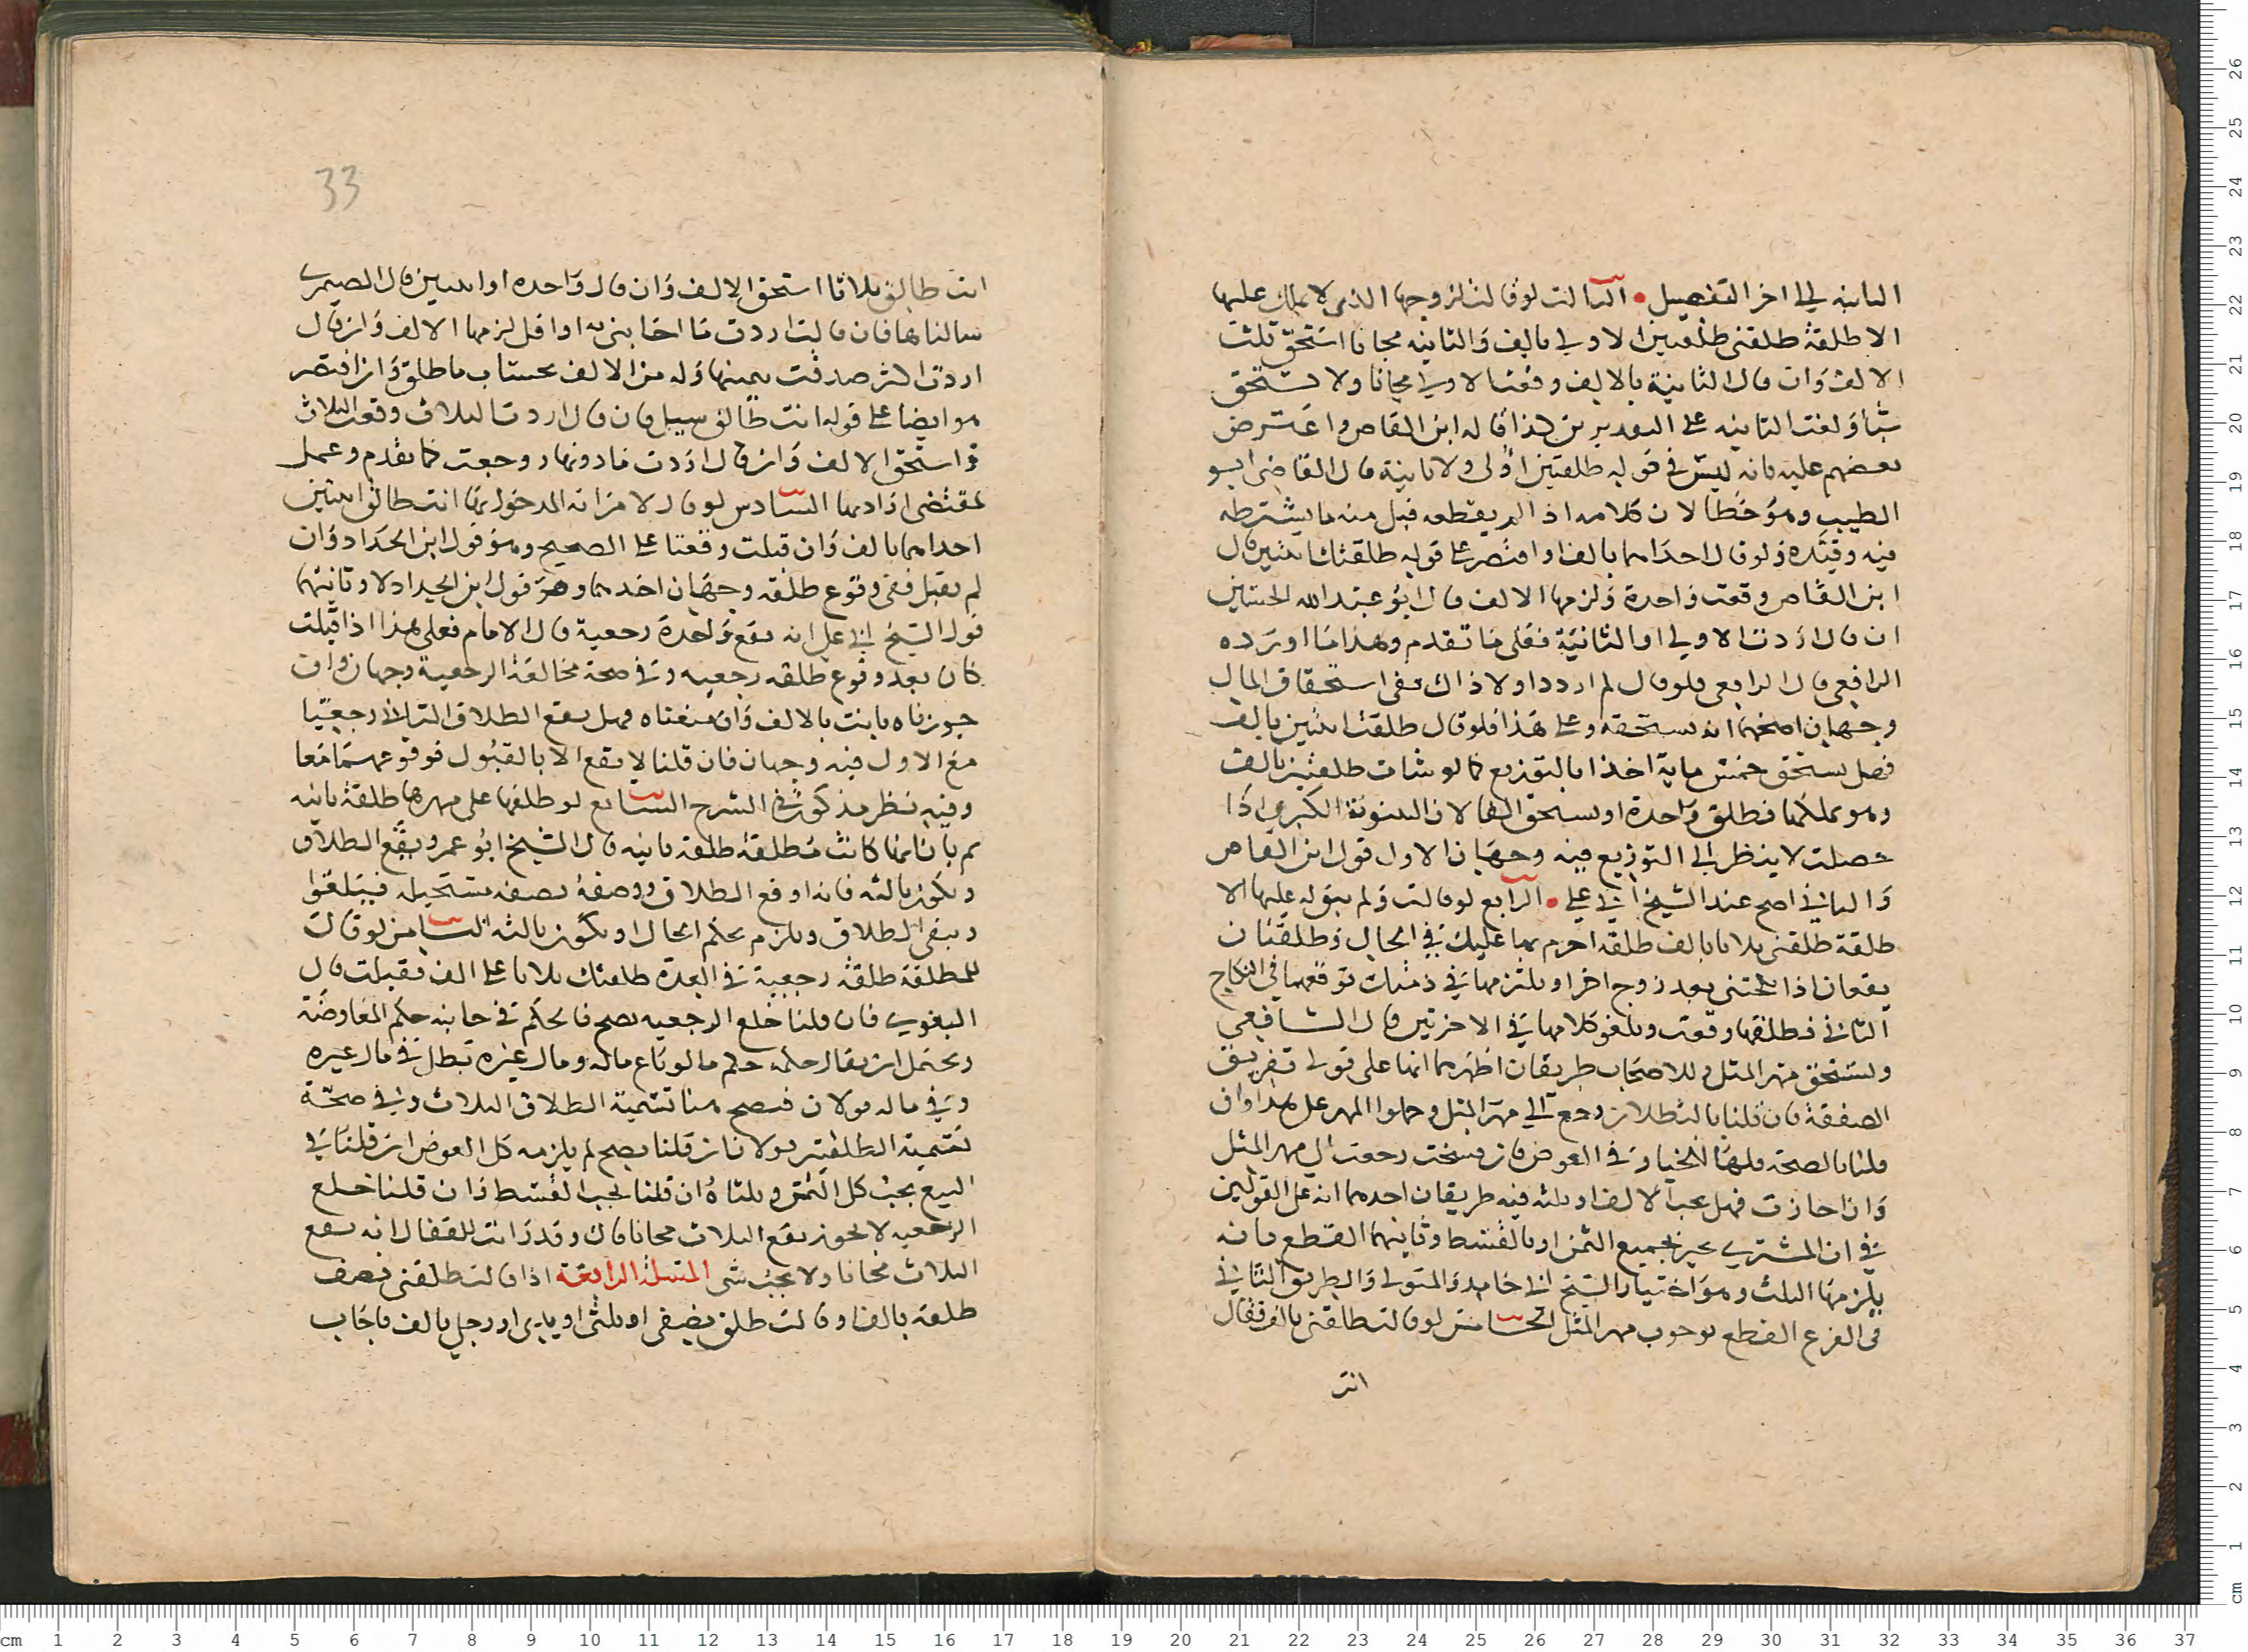 الثانية الى اخر التفصيل • الثالث لو قالت لزوجها الذي لا يملك عليها
الا طلقة طلقني طلقتين الاولى بالف والثانية مجانا استحق ثلث
الالف وان قال الثانية بالالف وقعت الاولى مجانا ولا يستحق
شيأ ولغت الثانية على التقديرين كذا قاله ابن القاص واعترض
بعضهم عليه بانه ليس في قوله طلقتين اولى ولا ثانية قال القاضي ابو
الطيب وهو خطا لان كلامه اذا لم يقطعه قبل منه ما يشترطه
فيه وقيده ولو قال احداهما بالف او اقتصر على قوله طلقتك ثنتين قال
ابن القاص وقعت واحدة ولزمها الالف قال ابو عبد الله الحسين
ان قال اردت الاولى او الثانية فعلى ما تقدم وهذا ما اورده
الرافعي قال الرافعي فلو قال لم ارد ذا ولا ذاك ففي استحقاق المال
وجهان اصحهما انه يستحقه وعلى هذا فلو قال طلقتك اثنتين بالف
فهل يستحق خمس ماية اخذا بالتوزيع كما لو شات طلقتين بالف
وهو يملكهما فطلق واحدة او يستحق الفا لان البينونة الكبرى اذا
حصلت لا ينظر الى التوزيع فيه وجهان الاول قول ابن القاص
والثاني اصح عند الشيخ ابي علي • الرابع لو قالت ولم يبق له عليها الا
طلقة طلقني ثلاثا بالف طلقة احرم بها عليك في الحال وطلقتان
يقعان اذا نكحتني بعد زوج اخر او يلتزمها في ذمتك توقعهما في النكاح
الثاني فطلقها وقعت ويلغو كلامها في الاخرتين قال الشافعي
ويستحق مهر المثل وللاصحاب طريقان اظهرهما انها على قولي تفريق
الصفقة فان قلنا بالبطلان رجع الى مهر المثل وحملوا المهر على هذا وان
قلنا بالصحة فلها الخيار في العوض فان فسخت رجعت الى مهر المثل
وان اجازت فهل يجب الالف او ثلثه فيه طريقان احدهما انه على القولين
في ان المشتري يجيز بجميع الثمن او بالقسط وثانيهما القطع بانه
يلزمها الثلث وهو اختيار الشيخ ابي حامد والمتولي والطريق الثاني
في الفرع القطع بوجوب مهر المثل الخامس لو قالت طلقني بالف فقال
انت
33
انت طالق ثلاثا استحق الالف وان قال واحدة او اثنتين قال الصيمري
سالناها فان قالت اردت ما اجابني به او اقل لزمها الالف وان قال
اردت اكثر صدقت بيمينها وله من الالف بحساب ما طلق وان اقتصر
هو ايضا على قوله انت طالق سيل فان قال اردت الثلاث وقعت الثلاث
واستحق الالف وان قال اردت ما دونها روجعت كما تقدم وعمل
بمقتضى ارادتها السادس لو قال لامراته المدخول بها انت طالق اثنتين
احداهما بالف وان قبلت وقعتا على الصحيح وهو قول ابن الحداد وان
لم تقبل ففي وقوع طلقة وجهان احدهما وهو قول ابن الحداد لا وثانيهما
قول الشيخ ابي علي انه تقع واحدة رجعية قال الامام فعلى هذا اذا قبلت
كان بعد وقوع طلقة رجعية وفي صحة مخالعة الرجعية وجهان وان
جوزناه بانت بالالف وان منعناه فهل يقع الطلاق الثاني رجعيا
مع الاول فيه وجهان فان قلنا لا يقع الا بالقبول فوقوعهما معا
وفيه نظر مذكور في الشرح السابع لو طلقها على مهرها طلقة باينه
ثم بان انها كانت مطلقة طلقة باينه قال الشيخ ابو عمرو يقع الطلاق
وتكون ثالثه فانه اوقع الطلاق ووصفه بصفه مستحيله فيلغوا
ويبقى الطلاق ويلزم بحكم الحال او تكون ثالثه الثامن لو قال
للمطلقة طلقة رجعية في العدة طلقتك ثلاثا على الف فقبلت قال
البغوي فان قلنا خلع الرجعيه يصح فالحكم في جانبه حكم المعاوضة
ويحتمل ان يقال حكمه حكم ما لو باع ماله ومال غيره تبطل في مال غيره
وفي ماله قولان فتصح هنا تسمية الطلاق الثلاث وفي صحة
تسمية الطلقتين قولان ان قلنا يصح لم يلزمه كل العوض ان قلنا في
البيع يجب كل الثمن وثلثاه ان قلنا يجب القسط وان قلنا خلع
الرجعيه لا يجوز يقع الثلاث مجانا قال وقد رايت للقفال انه يقع
الثلاث مجانا ولا يجب شي المسئلة الرابعة اذا قالت طلقني نصف
طلقة بالف او قالت طلق نصفي او ثلثي او يدي او رجلي بالف فاجاب